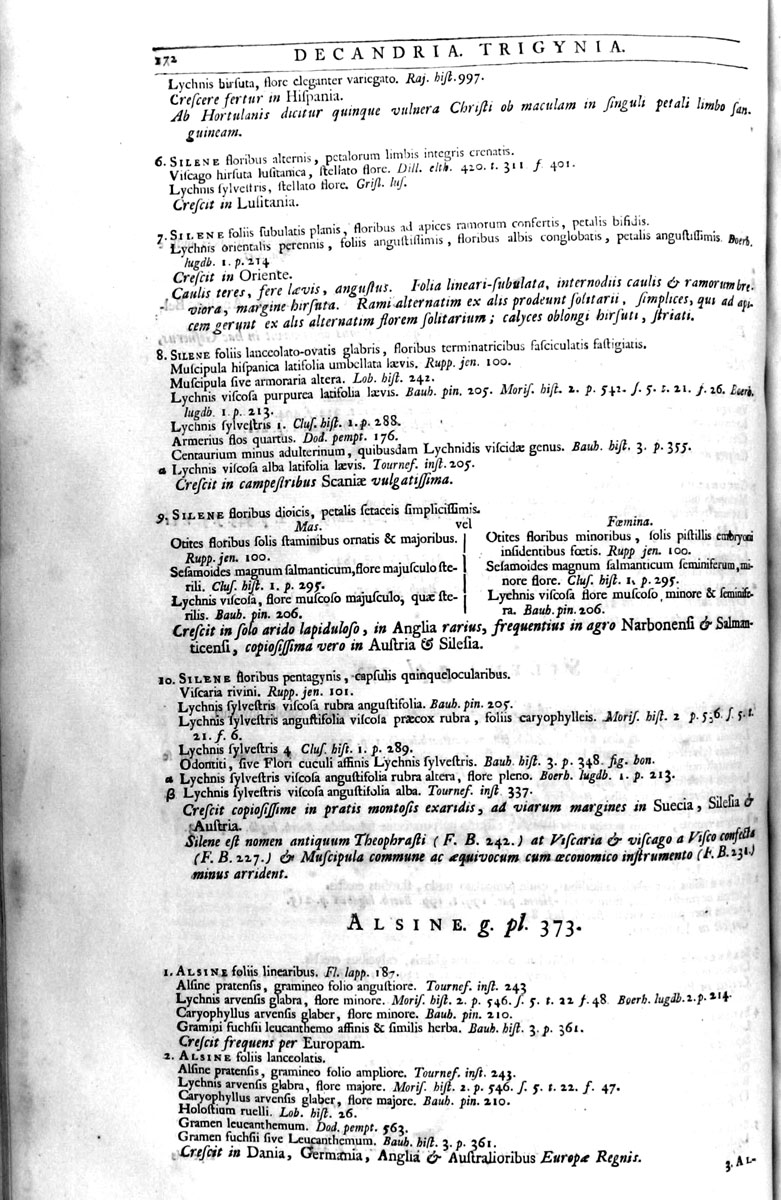 172
DECANDRIA. TRIGYNIA.
Lychnis hirſuta, flore eleganter variegato. Raj. hiſt. 997.
Creſcere fertur in Hiſpania.
Ab Hortulanis dicitur quinque vulnera Chriſti ob maculam in ſinguli petali limbo ſan.
guineam.
6. SILENE floribus alternis, petalorum limbis integris crenatis.
Viſcago hirſuta luſitanica, ſtellato flore. Dill. elth. 420. t. 311 f. 401.
Lychnis ſylveſtris, ſtellato flore. Griſl. luſ.
Creſcit in Luſitania.
7. SILENE foliis ſubulatis planis, floribus ad apices ramorum confertis, petalis bifidis.
Lychnis orientalis perennis, foliis anguſtiſſimis, floribus albis conglobatis, petalis anguſtiſſimis. Boerh.
lugdb. 1. p. 214
Creſcit in Oriente.
Caulis teres, fere lævis, anguſtus. Folia lineari-ſubulata, internodiis caulis & ramorum bre-
viora, margine hirſuta. Rami alternatim ex alis prodeunt ſolitarii, ſimplices, qui ad api-
cem gerunt ex alis alternatim florem ſolitarium; calyces oblongi hirſuti, ſtriati.
8. SILENE foliis lanceolato-ovatis glabris, floribus terminatricibus faſciculatis faſtigiatis.
Muſcipula hiſpanica latifolia umbellata lævis. Rupp. jen. 100.
Muſcipula ſive armoraria altera. Lob. hiſt. 242.
Lychnis viſcoſa purpurea latifolia lævis. Bauh. pin. 205. Moriſ. hiſt. 2. p. 542. ſ. 5. t. 21. f. 26. Boerh.
lugdb. 1. p. 213.
Lychnis ſylveſtris 1. Cluſ. hiſt. 1. p. 288.
Armerius flos quartus. Dod. pempt. 176.
Centaurium minus adulterinum, quibusdam Lychnidis viſcidæ genus. Bauh. hiſt. 3. p. 355.
α Lychnis viſcoſa alba latifolia lævis. Tournef. inſt. 205.
Creſcit in campeſtribus Scaniæ vulgatiſſima.
9. SILENE floribus dioicis, petalis ſetaceis ſimpliciſſimis.
Mas. vel Fœmina.
Otites floribus ſolis ſtaminibus ornatis & majoribus.
Rupp. jen. 100.
Seſamoides magnum ſalmanticum, flore majuſculo ſte-
rili. Cluſ. hiſt. 1. p. 295.
Lychnis viſcoſa, flore muſcoſo majuſculo, quæ ſte-
rilis. Bauh. pin. 206.
Otites floribus minoribus, ſolis piſtillis embryoni
inſidentibus fœtis. Rupp jen. 100.
Seſamoides magnum ſalmanticum ſeminiferum, mi-
nore flore. Cluſ. hiſt. 1. p. 295.
Lychnis viſcoſa flore muſcoſo minore & ſeminife-
ra. Bauh. pin. 206.
Creſcit in ſolo arido lapiduloſo, in Anglia rarius, frequentius in agro Narbonenſi & Salman-
ticenſi, copioſiſſima vero in Auſtria & Sileſia.
10. SILENE floribus pentagynis, capſulis quinquelocularibus.
Viſcaria rivini. Rupp. jen. 101.
Lychnis ſylveſtris viſcoſa rubra anguſtifolia. Bauh. pin. 205.
Lychnis ſylveſtris anguſtifolia viſcoſa præcox rubra, foliis caryophylleis. Moriſ. hiſt. 2 p. 536 ſ. 5. t.
21. f. 6.
Lychnis ſylveſtris 4 Cluſ. hiſt. 1. p. 289.
Odontiti, ſive Flori cuculi affinis Lychnis ſylveſtris. Bauh. hiſt. 3. p. 348. fig. bon.
α Lychnis ſylveſtris viſcoſa anguſtifolia rubra altera, flore pleno. Boerh. lugdb. 1. p. 213.
β Lychnis ſylveſtris viſcoſa anguſtifolia alba. Tournef. inſt 337.
Creſcit copioſiſſime in pratis montoſis exaridis, ad viarum margines in Suecia, Sileſia &
Auſtria.
Silene eſt nomen antiquum Theophraſti (F. B. 242.) at Viſcaria & viſcago a Viſco confecta
(F. B. 227.) & Muſcipula commune ac æquivocum cum œconomico inſtrumento (F. B. 231.)
minus arrident.
ALSINE. g. pl. 373.
1. ALSINE foliis linearibus. Fl. lapp. 187.
Alſine pratenſis, gramineo folio anguſtiore. Tournef. inſt. 243
Lychnis arvenſis glabra, flore minore. Moriſ. hiſt. 2. p. 546. ſ. 5. t. 22 f. 48 Boerh. lugdb. 2. p. 214.
Caryophyllus arvenſis glaber, flore minore. Bauh. pin. 210.
Gramini fuchſii leucanthemo affinis & ſimilis herba. Bauh. hiſt. 3. p. 361.
Creſcit frequens per Europam.
2. ALSINE foliis lanceolatis.
Alſine pratenſis, gramineo folio ampliore. Tournef. inſt. 243.
Lychnis arvenſis glabra, flore majore. Moriſ. hiſt. 2. p. 546. ſ. 5. t. 22. f. 47.
Caryophyllus arvenſis glaber, flore majore. Bauh. pin. 210.
Holoſtium ruelli. Lob. hiſt. 26.
Gramen leucanthemum. Dod. pempt. 563.
Gramen fuchſii ſive Leucanthemum. Bauh. hiſt. 3. p. 361.
Creſcit in Dania, Germania, Anglia & Auſtralioribus Europæ Regnis.
3. AL-